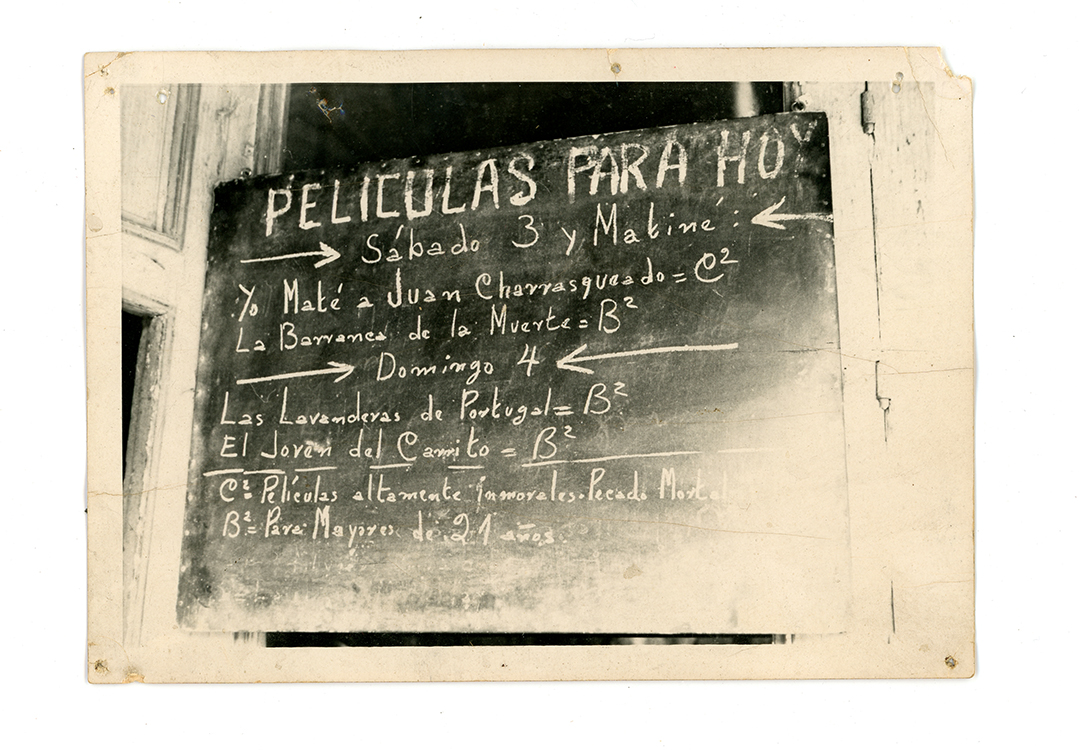 PELICULAS PARA HOY
Sábado 3 y Matiné:
Yo Maté a Juan Charrasqueado = C²
La Barranca de la Muerte = B²
Domingo 4
Las Lavanderas de Portugal = B²
El Joven del Carrito = B²
C² = Películas altamente inmorales. Pecado Mortal
B² = Para Mayores de 21 años.